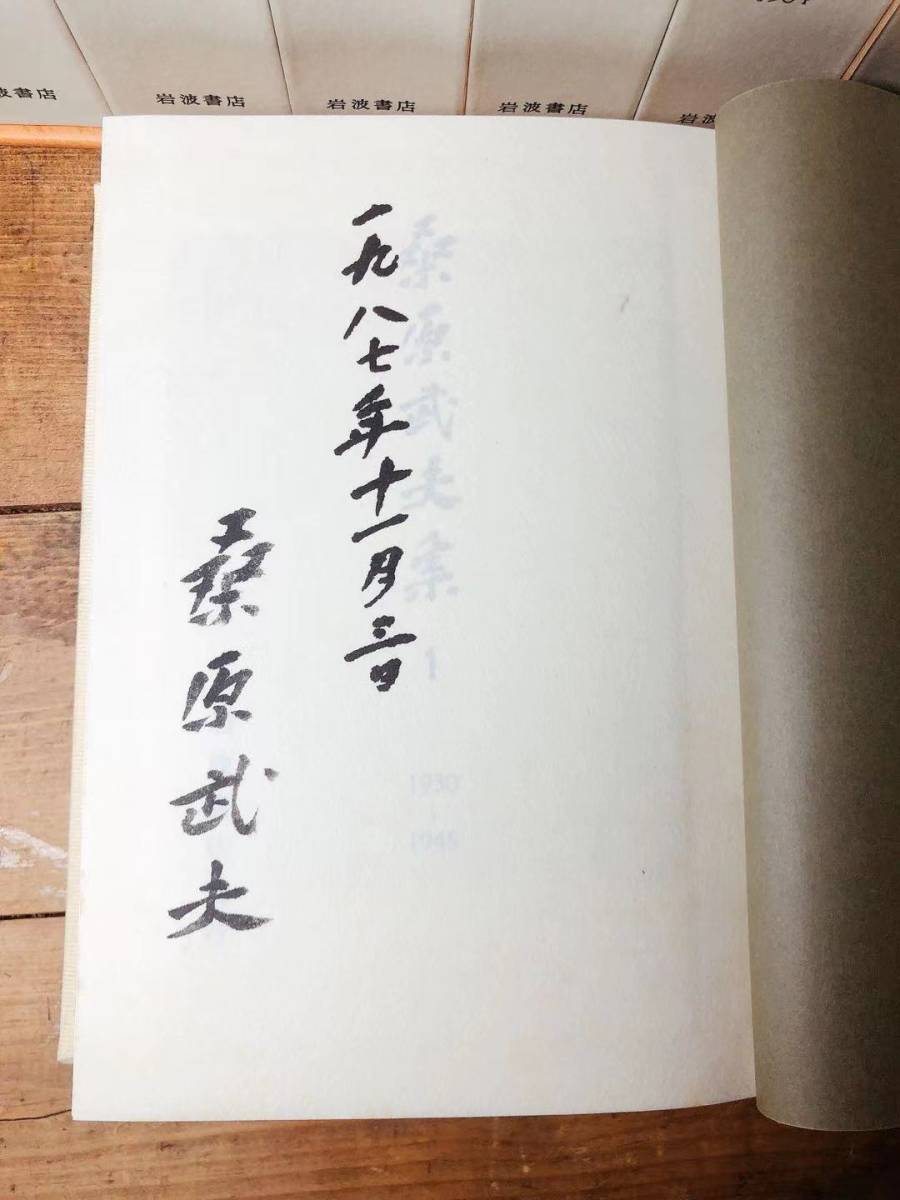 一九八七年十一月三日
桑原武夫
桑原武夫集
1
1930
1945
岩波書店
岩波書店
岩波書店
岩波書店
岩波